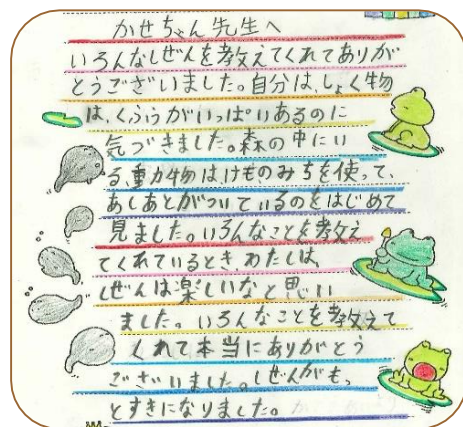 かせちゃん先生へ
いろんなしぜんを教えてくれてありが
とうございました。自分は、しょく物
は、くふうがいっぱいあるのに
気づきました。森の中にい
る動物はけものみちを使って、
あしあとがついているのをはじめて
見ました。いろんなことを教え
てくれているとき、わたしは、
しぜんは楽しいなと思い
ました。いろんなことを教えて
くれて本当にありがとう
ございいました。しぜんがもっ
とすきになりました。